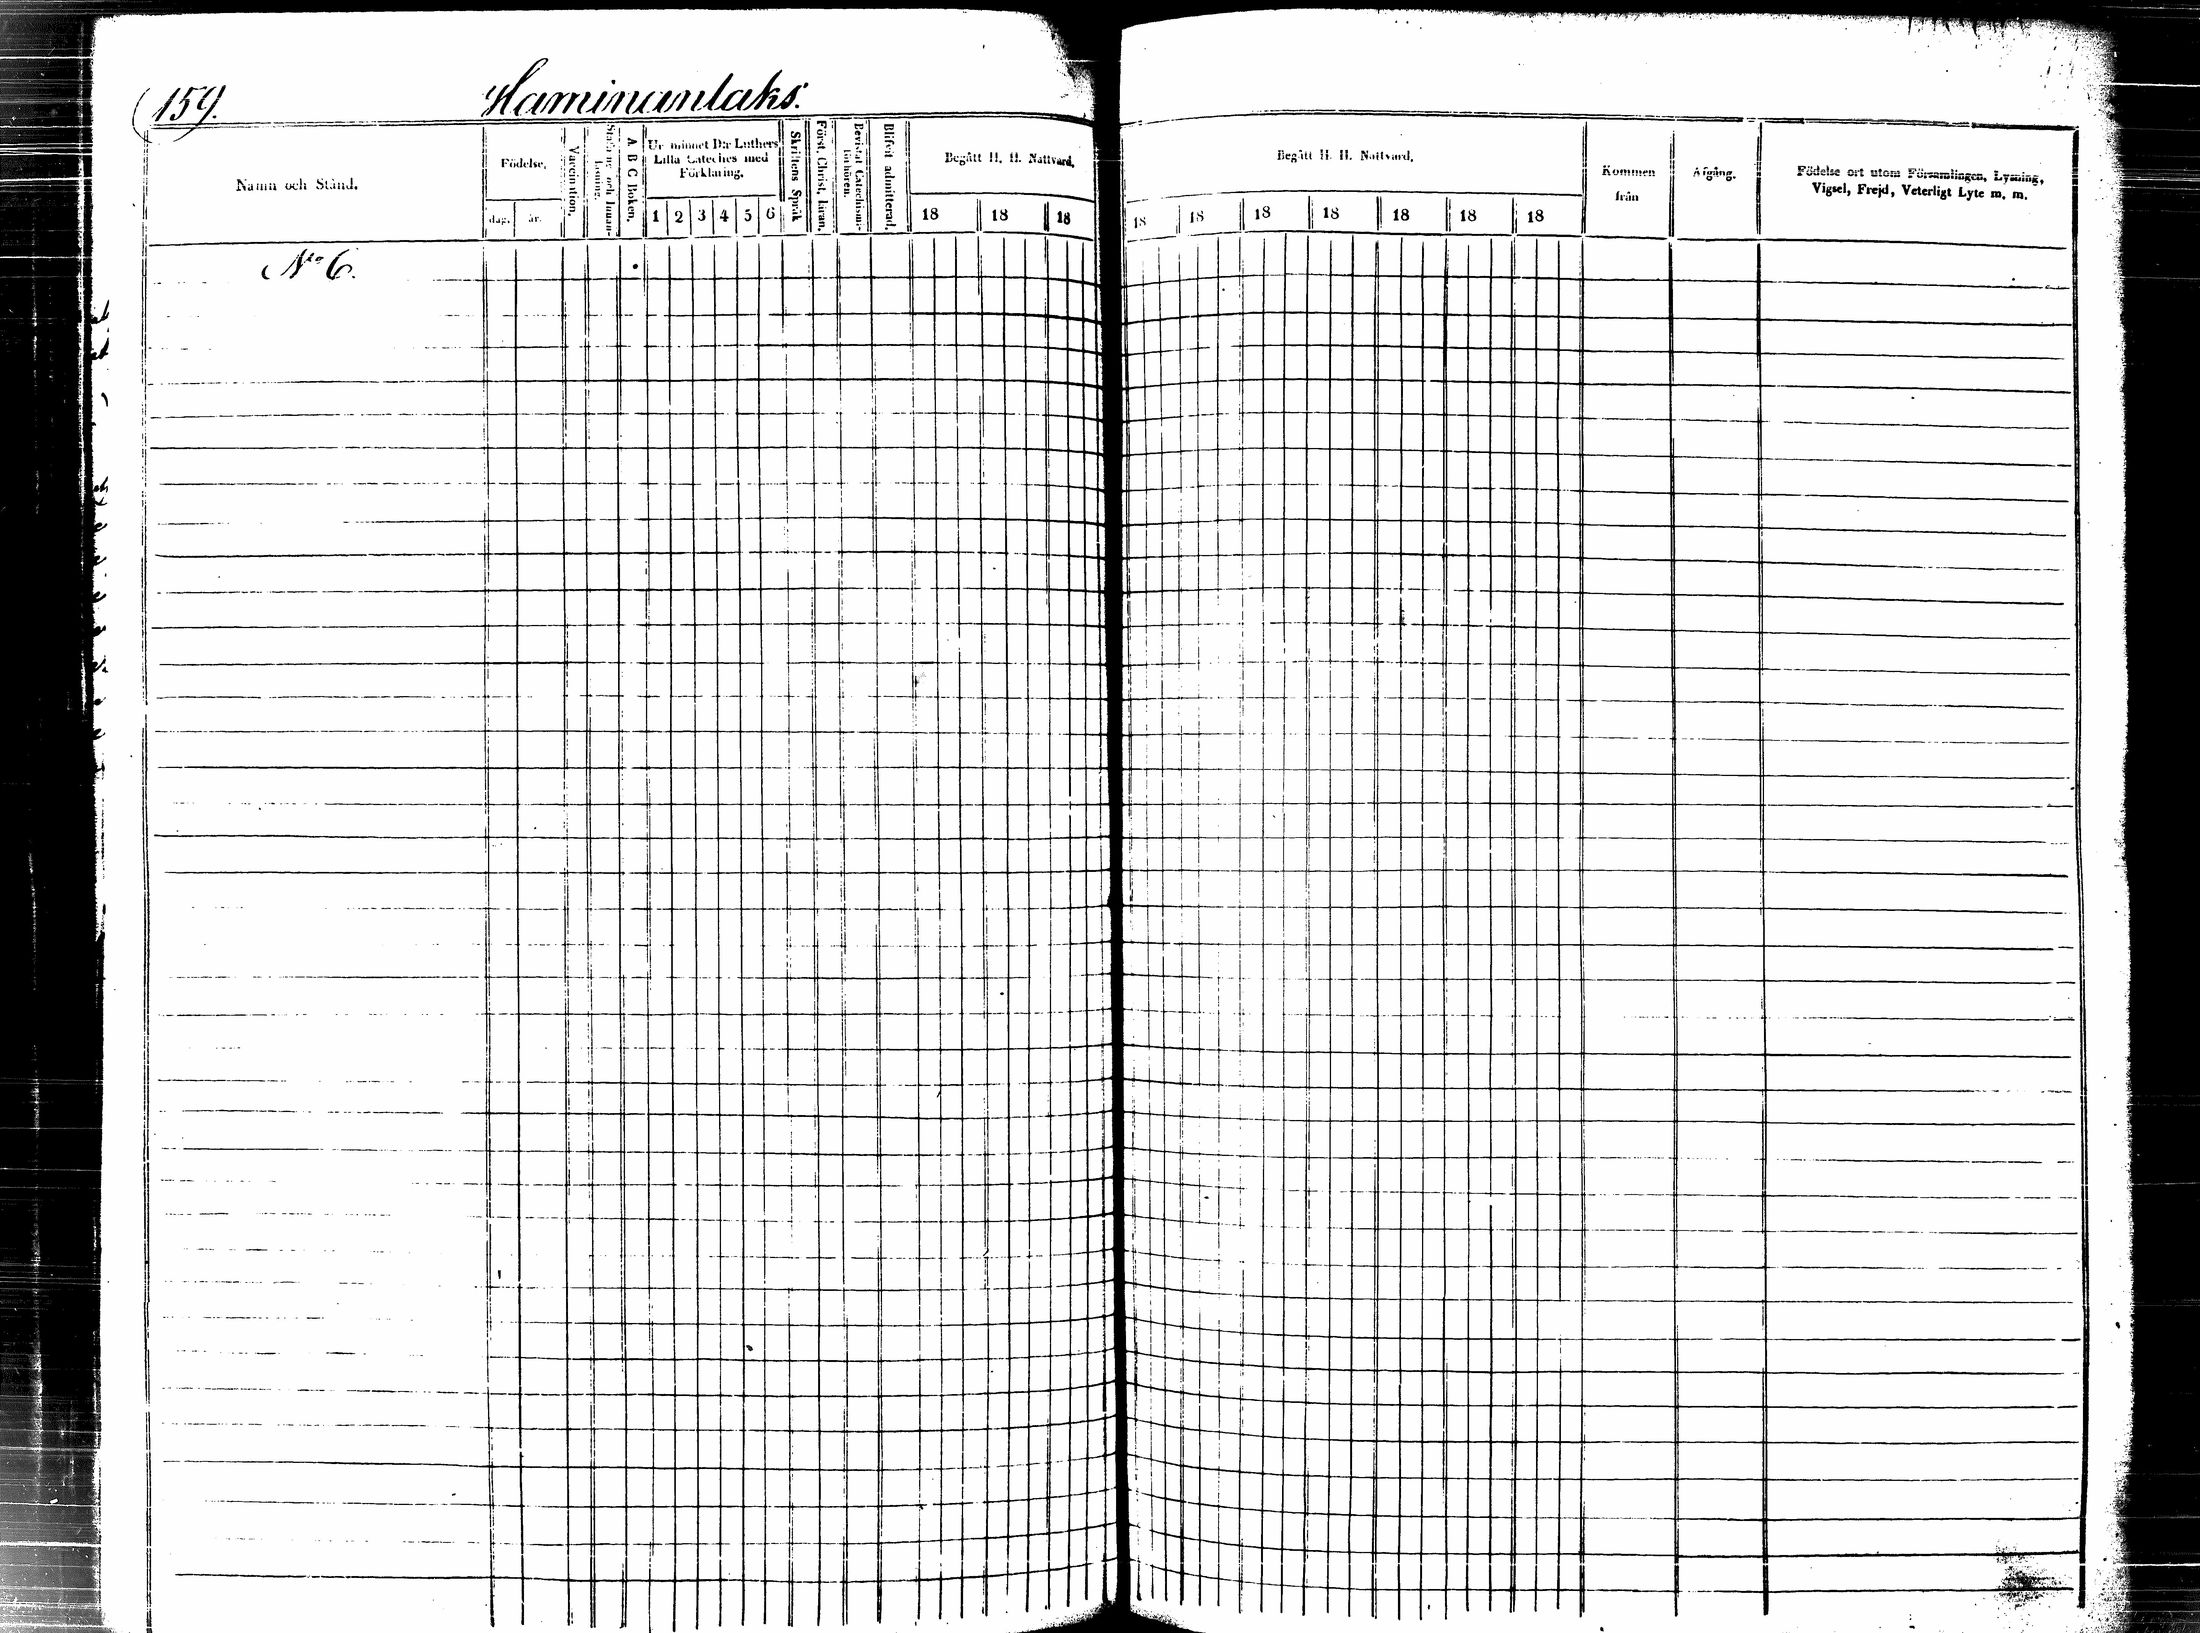 159.
Haminanlaks.
Namn och Stånd.
Födelse,
dag.
år.
Vaccination,
Stafning och Innan-
läsning.
A B C Boken,
Ur minnet D:r Luthers
Lilla Cateches med
Förklaring,
1 2 3 4 5 6
Skriftens Språk
Först. Christ. läran,
Bevistat Catechismi-
förhören.
Blifvit admitterad,
Begått H. H. Nattvard,
18 18 18
Begått H. H. Nattvard,
18 18 18 18 18 18 18
Kommen
från
Afgång.
Födelse ort utom Församlingen, Lysning,
Vigsel, Frejd, Veterligt Lyte m. m.
No 6.